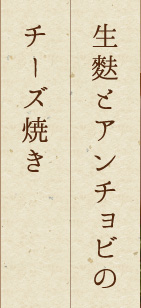 生麩とアンチョビの
チーズ焼き